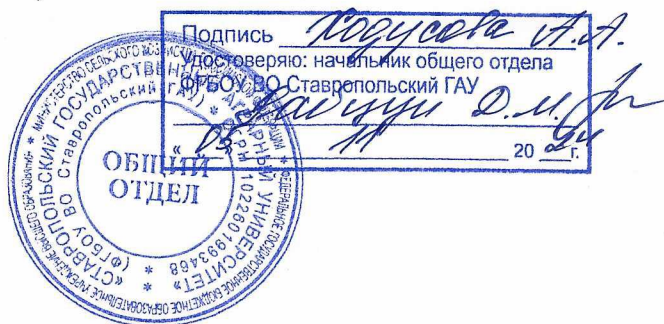 Подпись Ходусова А.А.
Удостоверяю: начальник общего отдела
ФГБОУ ВО Ставропольский ГАУ
Д.М.
« 05 » 11 20 24 г.
ОБЩИЙ
ОТДЕЛ
* МИНИСТЕРСТВО СЕЛЬСКОГО ХОЗЯЙСТВА РОССИЙСКОЙ ФЕДЕРАЦИИ * ФЕДЕРАЛЬНОЕ ГОСУДАРСТВЕННОЕ БЮДЖЕТНОЕ ОБРАЗОВАТЕЛЬНОЕ УЧРЕЖДЕНИЕ ВЫСШЕГО ОБРАЗОВАНИЯ
«СТАВРОПОЛЬСКИЙ ГОСУДАРСТВЕННЫЙ АГРАРНЫЙ УНИВЕРСИТЕТ»
(ФГБОУ ВО Ставропольский ГАУ) * ОГРН 1022601993468 *